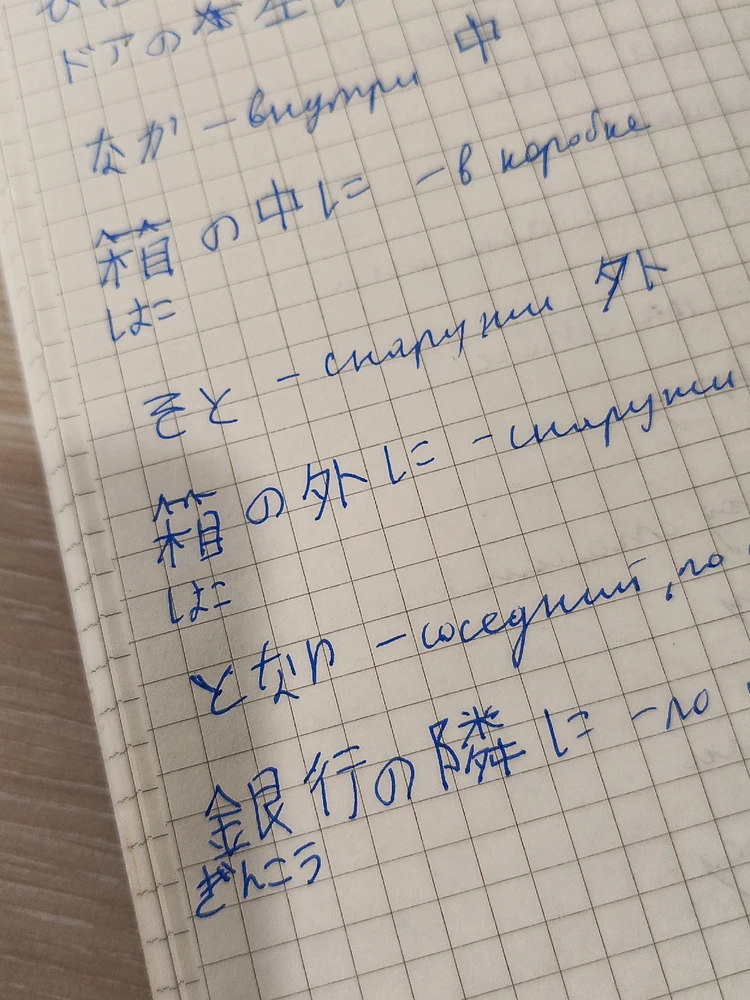 ドアの
なか - внутри 中
箱の中に - в коробке
はこ
そと - снаружи 外
箱の外に - снаружи
はこ
となり - соседний, по
銀行の隣に - по
ぎんこう